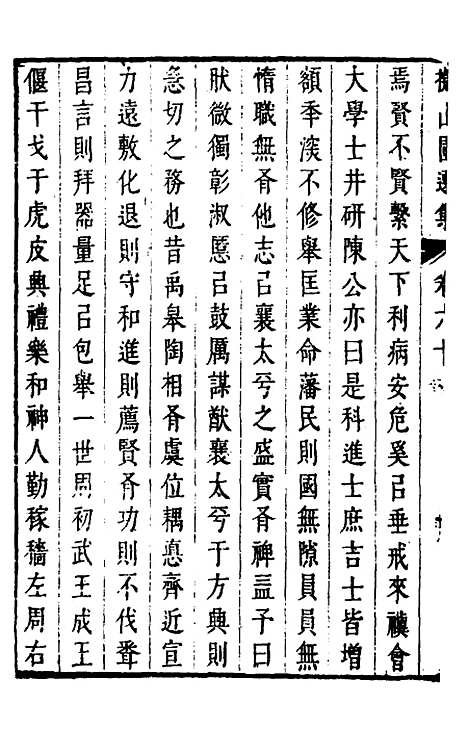 擬山園選集 卷六十
焉賢不賢繫天下利病安危奚㠯垂戒來禩會
大學士井研陳公亦曰是科進士庶吉士皆增
額季淡不修舉匡業命藩民則國無隙員員無
惰職無肴他志㠯襄太兮之盛實肴裨益予曰
猷微獨彰淑慝㠯鼓厲謀猷襄太兮于方典則
急切之務也昔禹皋陶相肴虞位耦惪齊近宣
力遠敷化退則守和進則薦賢肴功則不伐聞
昌言則拜器量足㠯包舉一世周初武王成王
偃干戈于虎皮典禮樂和神人勤稼穡左周右